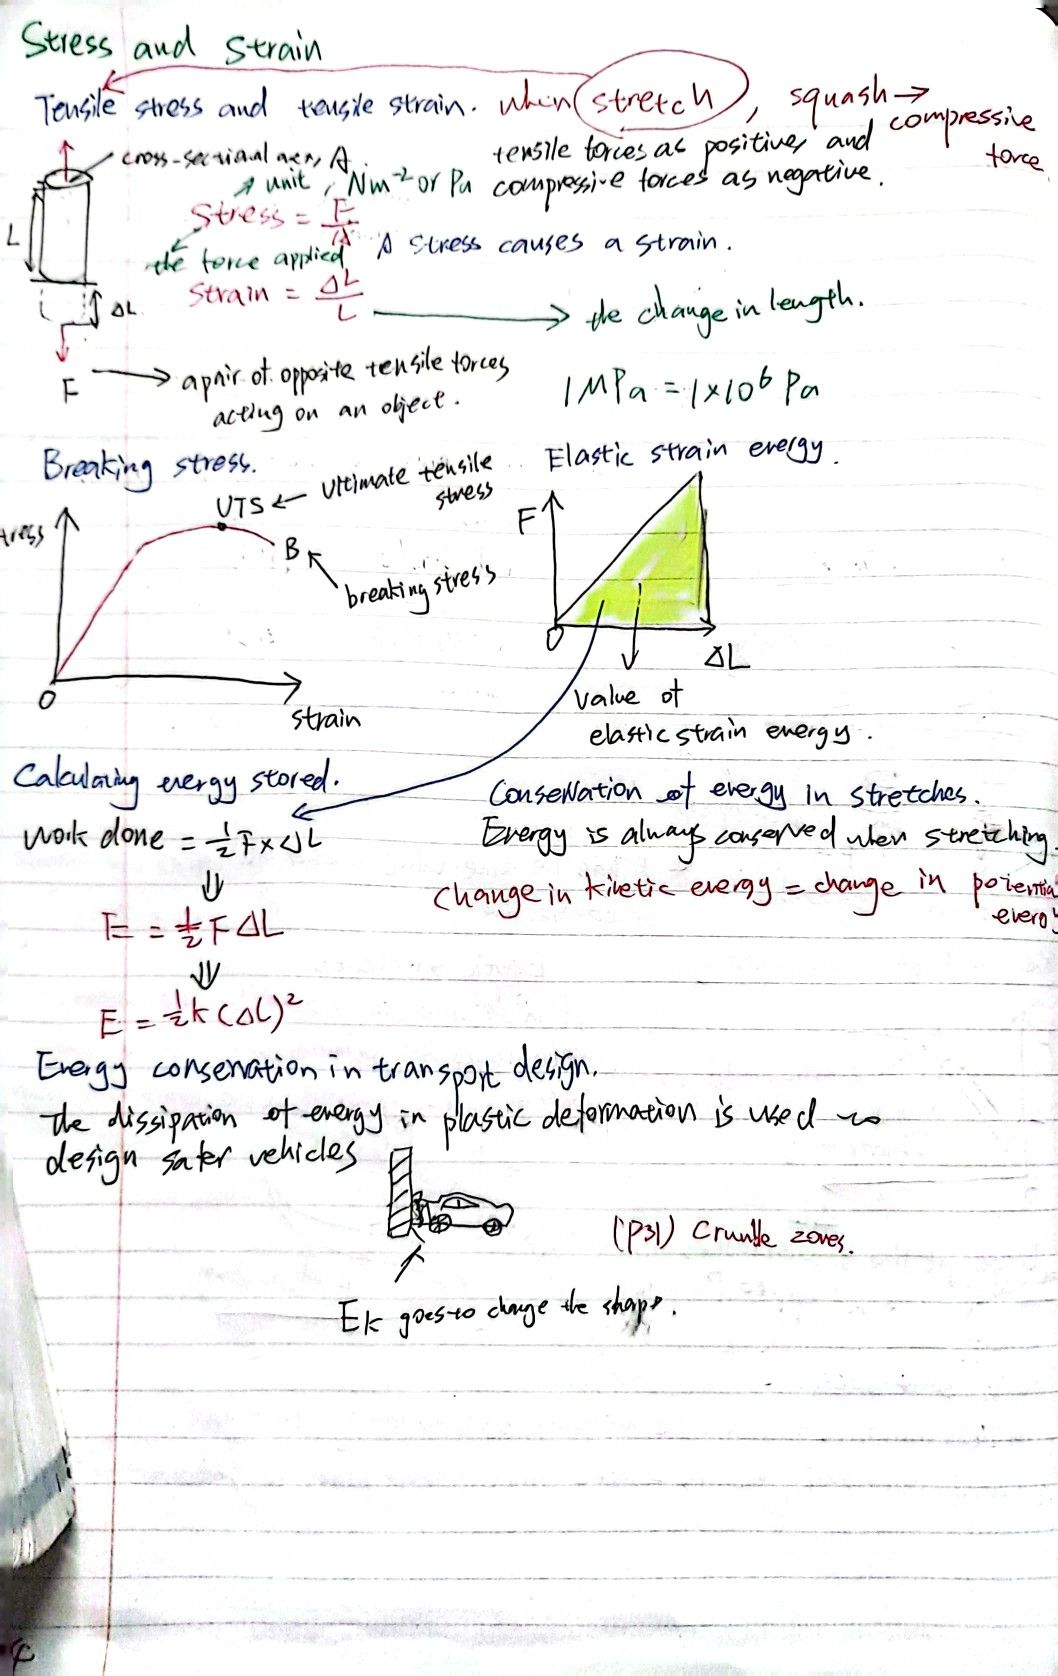 Stress and Strain
Tensile stress and tensile strain. when stretch, squash →
compressive
force
cross-sectional area, A.
unit, Nm⁻² or Pa
tensile forces as positive, and
compressive forces as negative.
Stress = F/A
the force applied
A stress causes a strain.
L
Strain = ΔL/L → the change in length.
ΔL
F → a pair of opposite tensile forces
acting on an object.
1MPa = 1×10⁶ Pa
Breaking stress.
UTS ← Ultimate tensile
stress
tress
B
breaking stress
O
strain
Elastic strain energy.
F
O
ΔL
value of
elastic strain energy.
Calculating energy stored.
Work done = ½F×ΔL
⇓
E = ½FΔL
⇓
E = ½k(ΔL)²
Conservation of energy in stretches.
Energy is always conserved when stretching.
Change in kinetic energy = change in potential
energy
Energy conservation in transport design.
the dissipation of energy in plastic deformation is used to
design safer vehicles
(P31) Crumple zones.
Ek goes to change the shape.